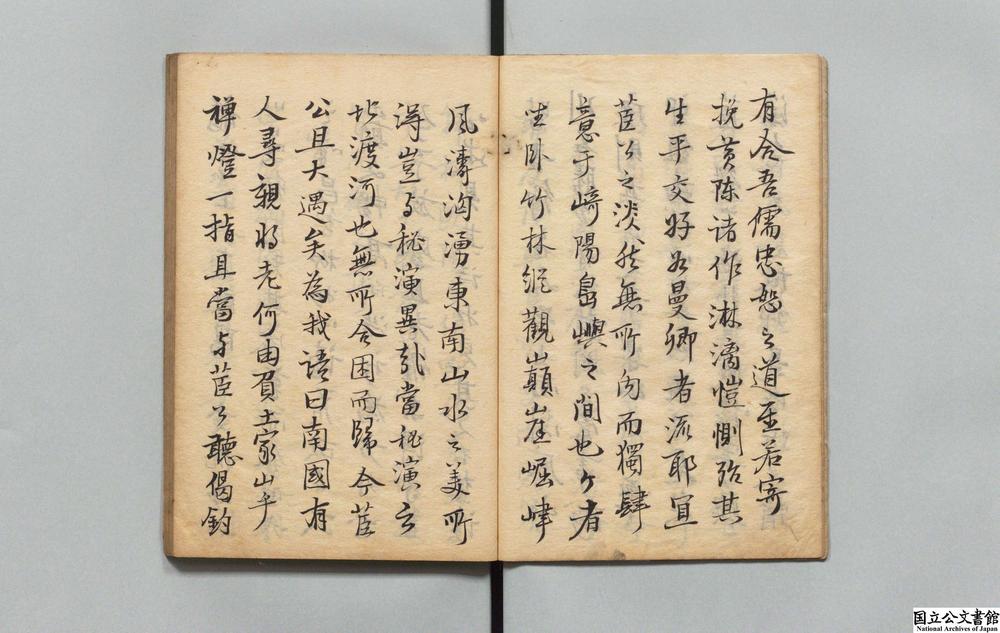 有合吾儒忠恕之道至若寄
挽黄陈诸作淋漓愷惻殆其
生平交好為曼卿者流耶宜
茝公之淡然無所向而獨肆
意于崎陽島嶼之間也今者
坐卧竹林縱觀巔崖崛峍
風濤洶湧東南山水之美所
得豈与秘演異哉當秘演之
北渡河也無所合困而歸今茝
公且大遇矣為我語曰南國有
人尋親將老何由負土家山乎
禅燈一指且當与茝公聽偈钓
国立公文書館
National Archives of Japan